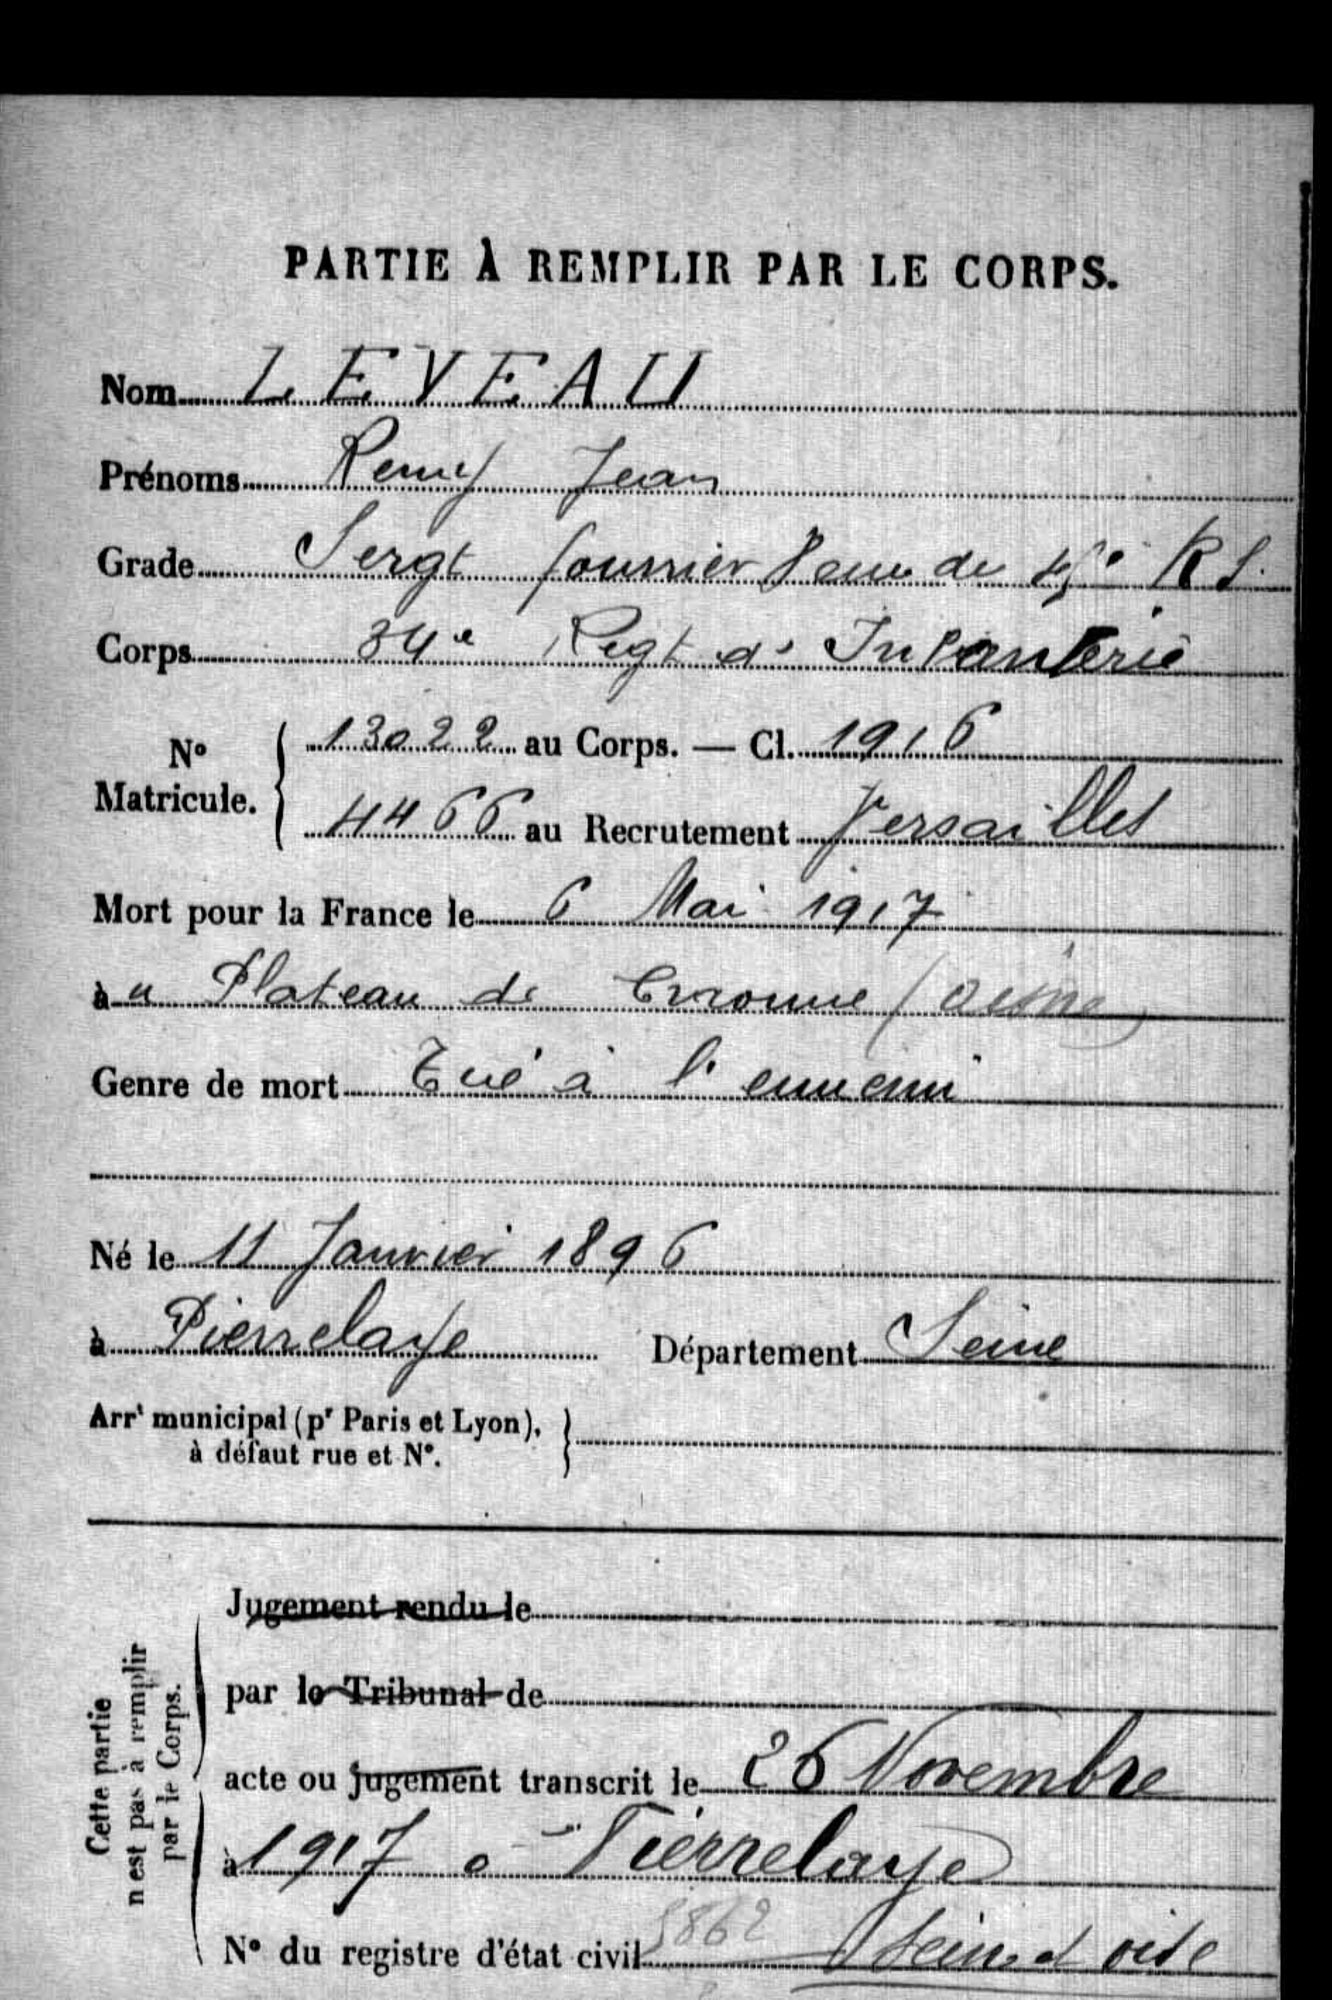 PARTIE À REMPLIR PAR LE CORPS.
Nom LEVEAU
Prénoms Remy Jean
Grade Sergt fourrier de R I.
Corps 34e Regt d' Infanterie
N° Matricule. 13022 au Corps. — Cl. 1916
4466 au Recrutement Versailles
Mort pour la France le 6 Mai 1917
à u Plateau de Craonne (aisne)
Genre de mort Tué à l'ennemi
Né le 11 Janvier 1896
à Pierrelaye Département Seine
Arrt municipal (pr Paris et Lyon), à défaut rue et N°.
Cette partie n'est pas à remplir par le Corps.
Jugement rendu le
par le Tribunal de
acte ou jugement transcrit le 26 Novembre
à 1917 à Pierrelaye
N° du registre d'état civil Seine et oise